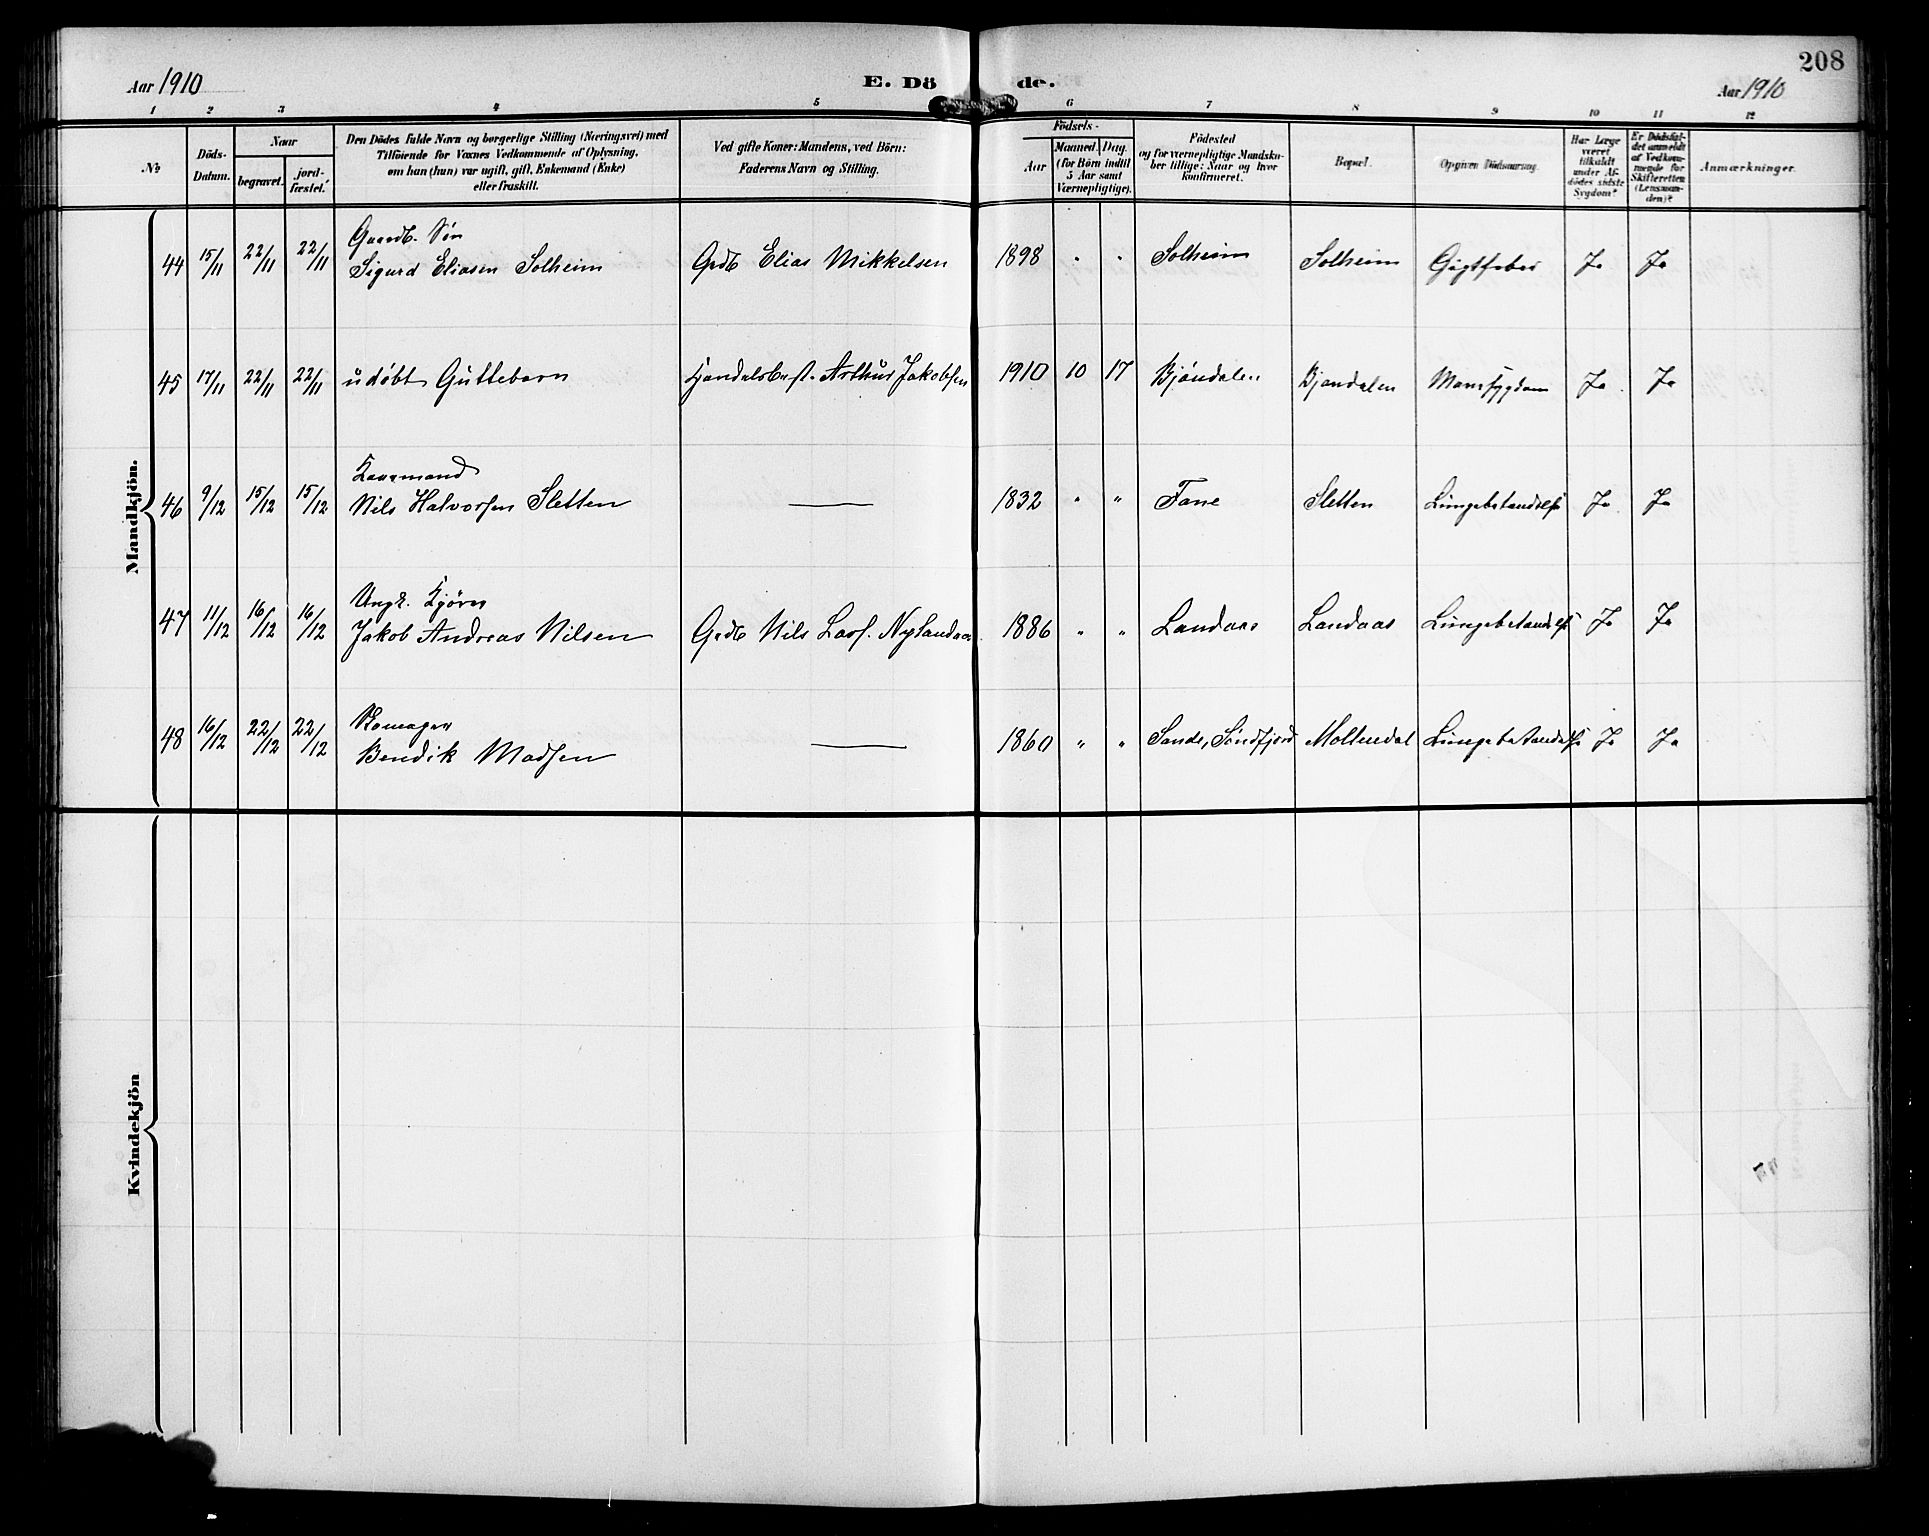 208
Aar 1910
E. Dö de.
Aar 1910
1 2 3 4 5 6 7 8 9 10 11 12
No
Döds-Datum.
Naar
begravet.
jord-fæstet.
Den Dödes fulde Navn og borgerlige Stilling (Næringsvei) med
Tilföiende for Voxnes Vedkommende af Oplysning,
om han (hun) var ugift, gift, Enkemand (Enke)
eller fraskilt.
Ved gifte Koner: Mandens, ved Börn:
Faderens Navn og Stilling.
Födsels-
Aar
Maaned. Dag.
(for Börn indtil
5 Aar samt
Værnepligtige).
Födested
og for værnepligtige Mandskaber tillige: Naar og hvor
konfirmeret.
Bopæl.
Opgiven Dödsaarsag.
Har Læge
været
tilkaldt
under Afdödes sidste
Sygdom?
Er Dödsfaldet anmeldt
af Vedkommende for
Skifteretten
(Lensmanden)?
Anmærkninger.
Mandkjön.
Gaardb. Søn
44 15/11 22/11 22/11 Sigurd Eliasen Solheim Grdb Elias Mikkelsen 1898 " " Solheim Solheim Gigtfeber Ja Ja
45 17/11 22/11 22/11 udøbt Guttebarn Handelsbest. Arthur Jakobsen 1910 10 17 Bjøndalen Bjøndalen Ja Ja
Kaarmand
46 9/12 15/12 15/12 Nils Halvorsen Sletten — 1832 " " Fane Sletten Lungebetændelse Ja Ja
Ungk. Kjører
47 11/12 16/12 16/12 Jakob Andreas Nilsen Grdb Nils Lars. Nylandaas 1886 " " Landaas Landaas Lungebetændelse Ja Ja
48 16/12 22/12 22/12 Bendik Madsen — 1860 " " Sande, Søndfjord Møllendal Lungebetændelse Ja Ja
Kvindekjön